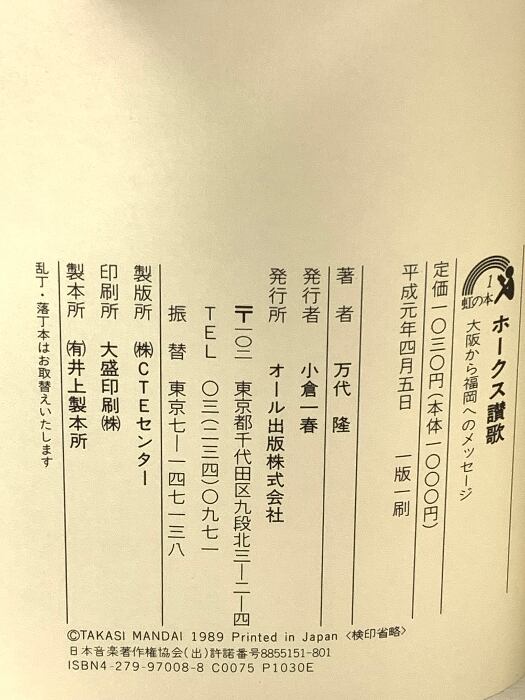 虹の本 1
ホークス讃歌
大阪から福岡へのメッセージ
定価一〇三〇円(本体一〇〇〇円)
平成元年四月五日　一版一刷
著者　万代　隆
発行者　小倉一春
発行所　オール出版株式会社
〒一〇二　東京都千代田区九段北三―二―四
TEL　〇三(二三四)〇九七一
振替　東京七―一四七一三八
製版所　㈱CTEセンター
印刷所　大盛印刷㈱
製本所　㈲井上製本所
乱丁・落丁本はお取替えいたします
©TAKASI MANDAI 1989 Printed in Japan 〈検印省略〉
日本音楽著作権協会(出)許諾番号8855151-801
ISBN4-279-97008-8 C0075 P1030E